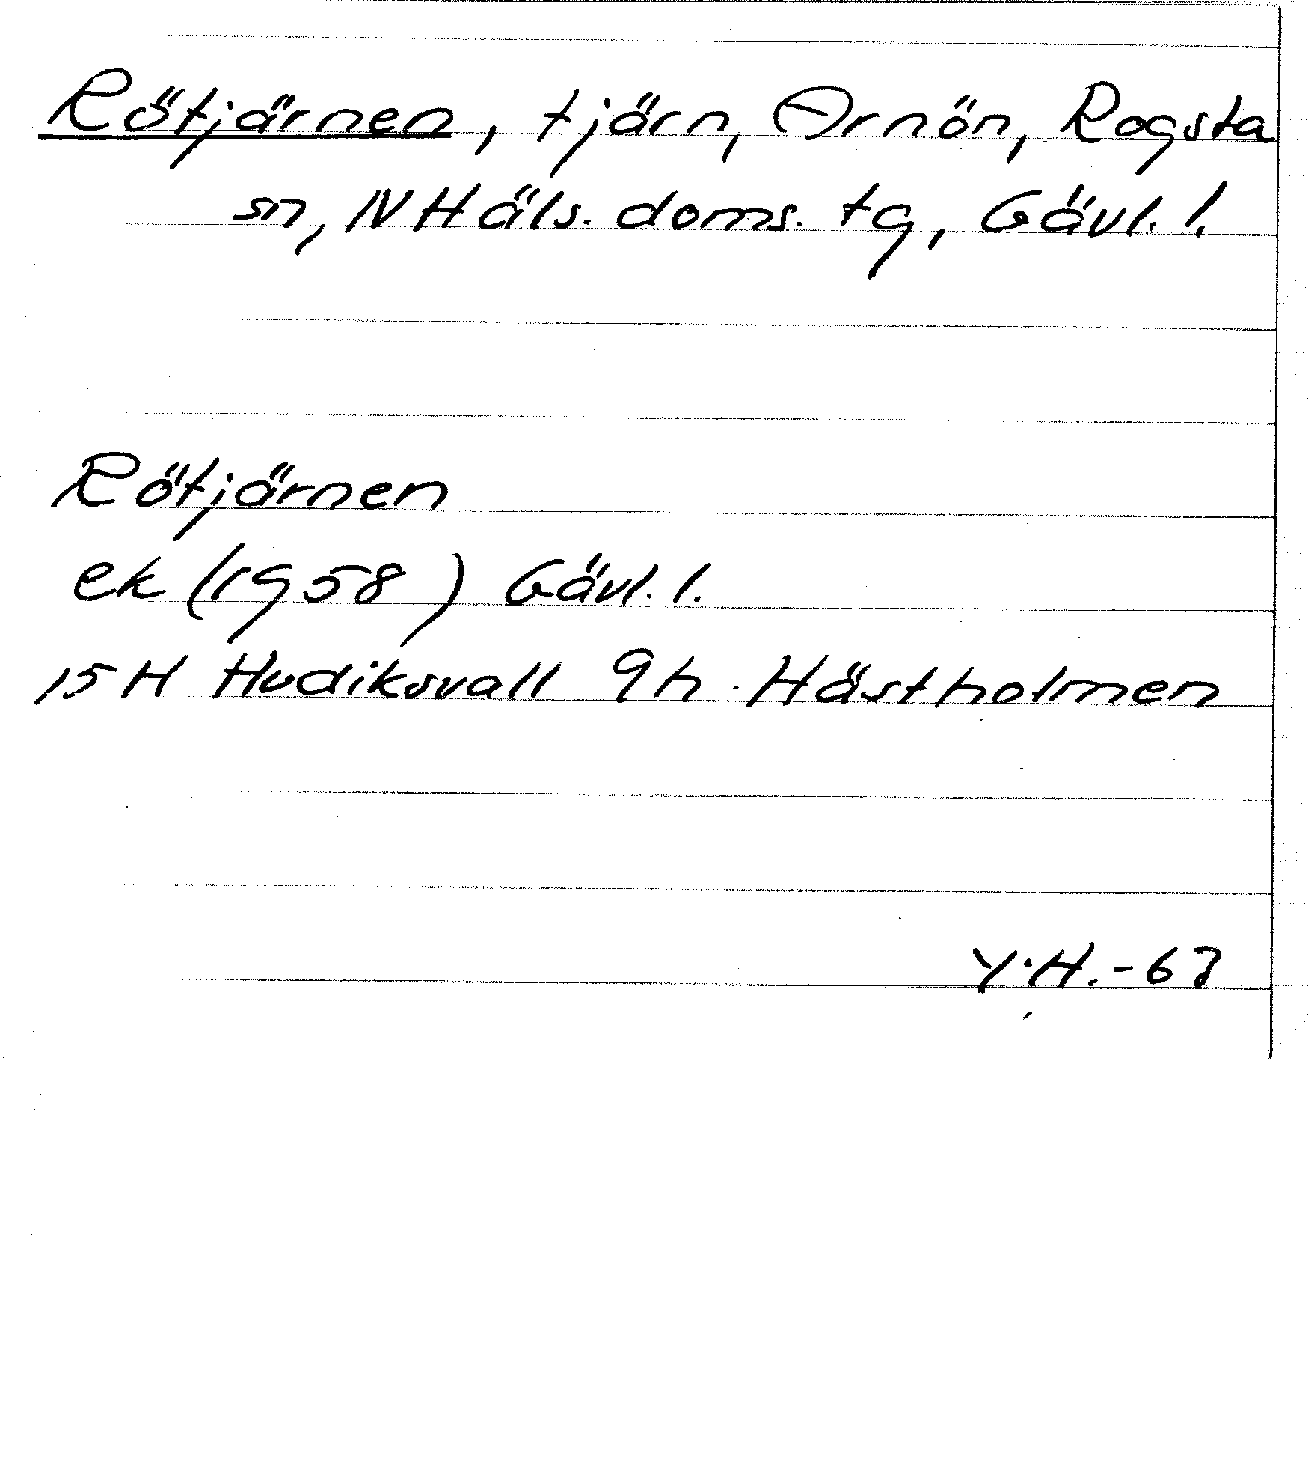 Rötjärnen, tjärn, Arnön, Rogsta
sn, N Häls. doms. tg, Gävl. l.
Rötjärnen
ek (1958) Gävl. l.
15 H Hudiksvall 9h Hästholmen
Y.H.-67